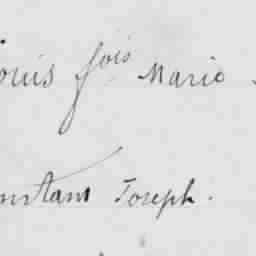 ouis fois Marie
nstant Joseph.